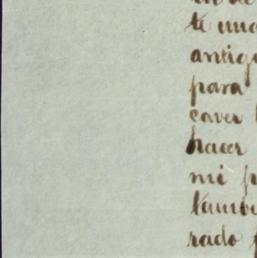 te una
antig
para
caver
hacer
mi p
tambi
rado